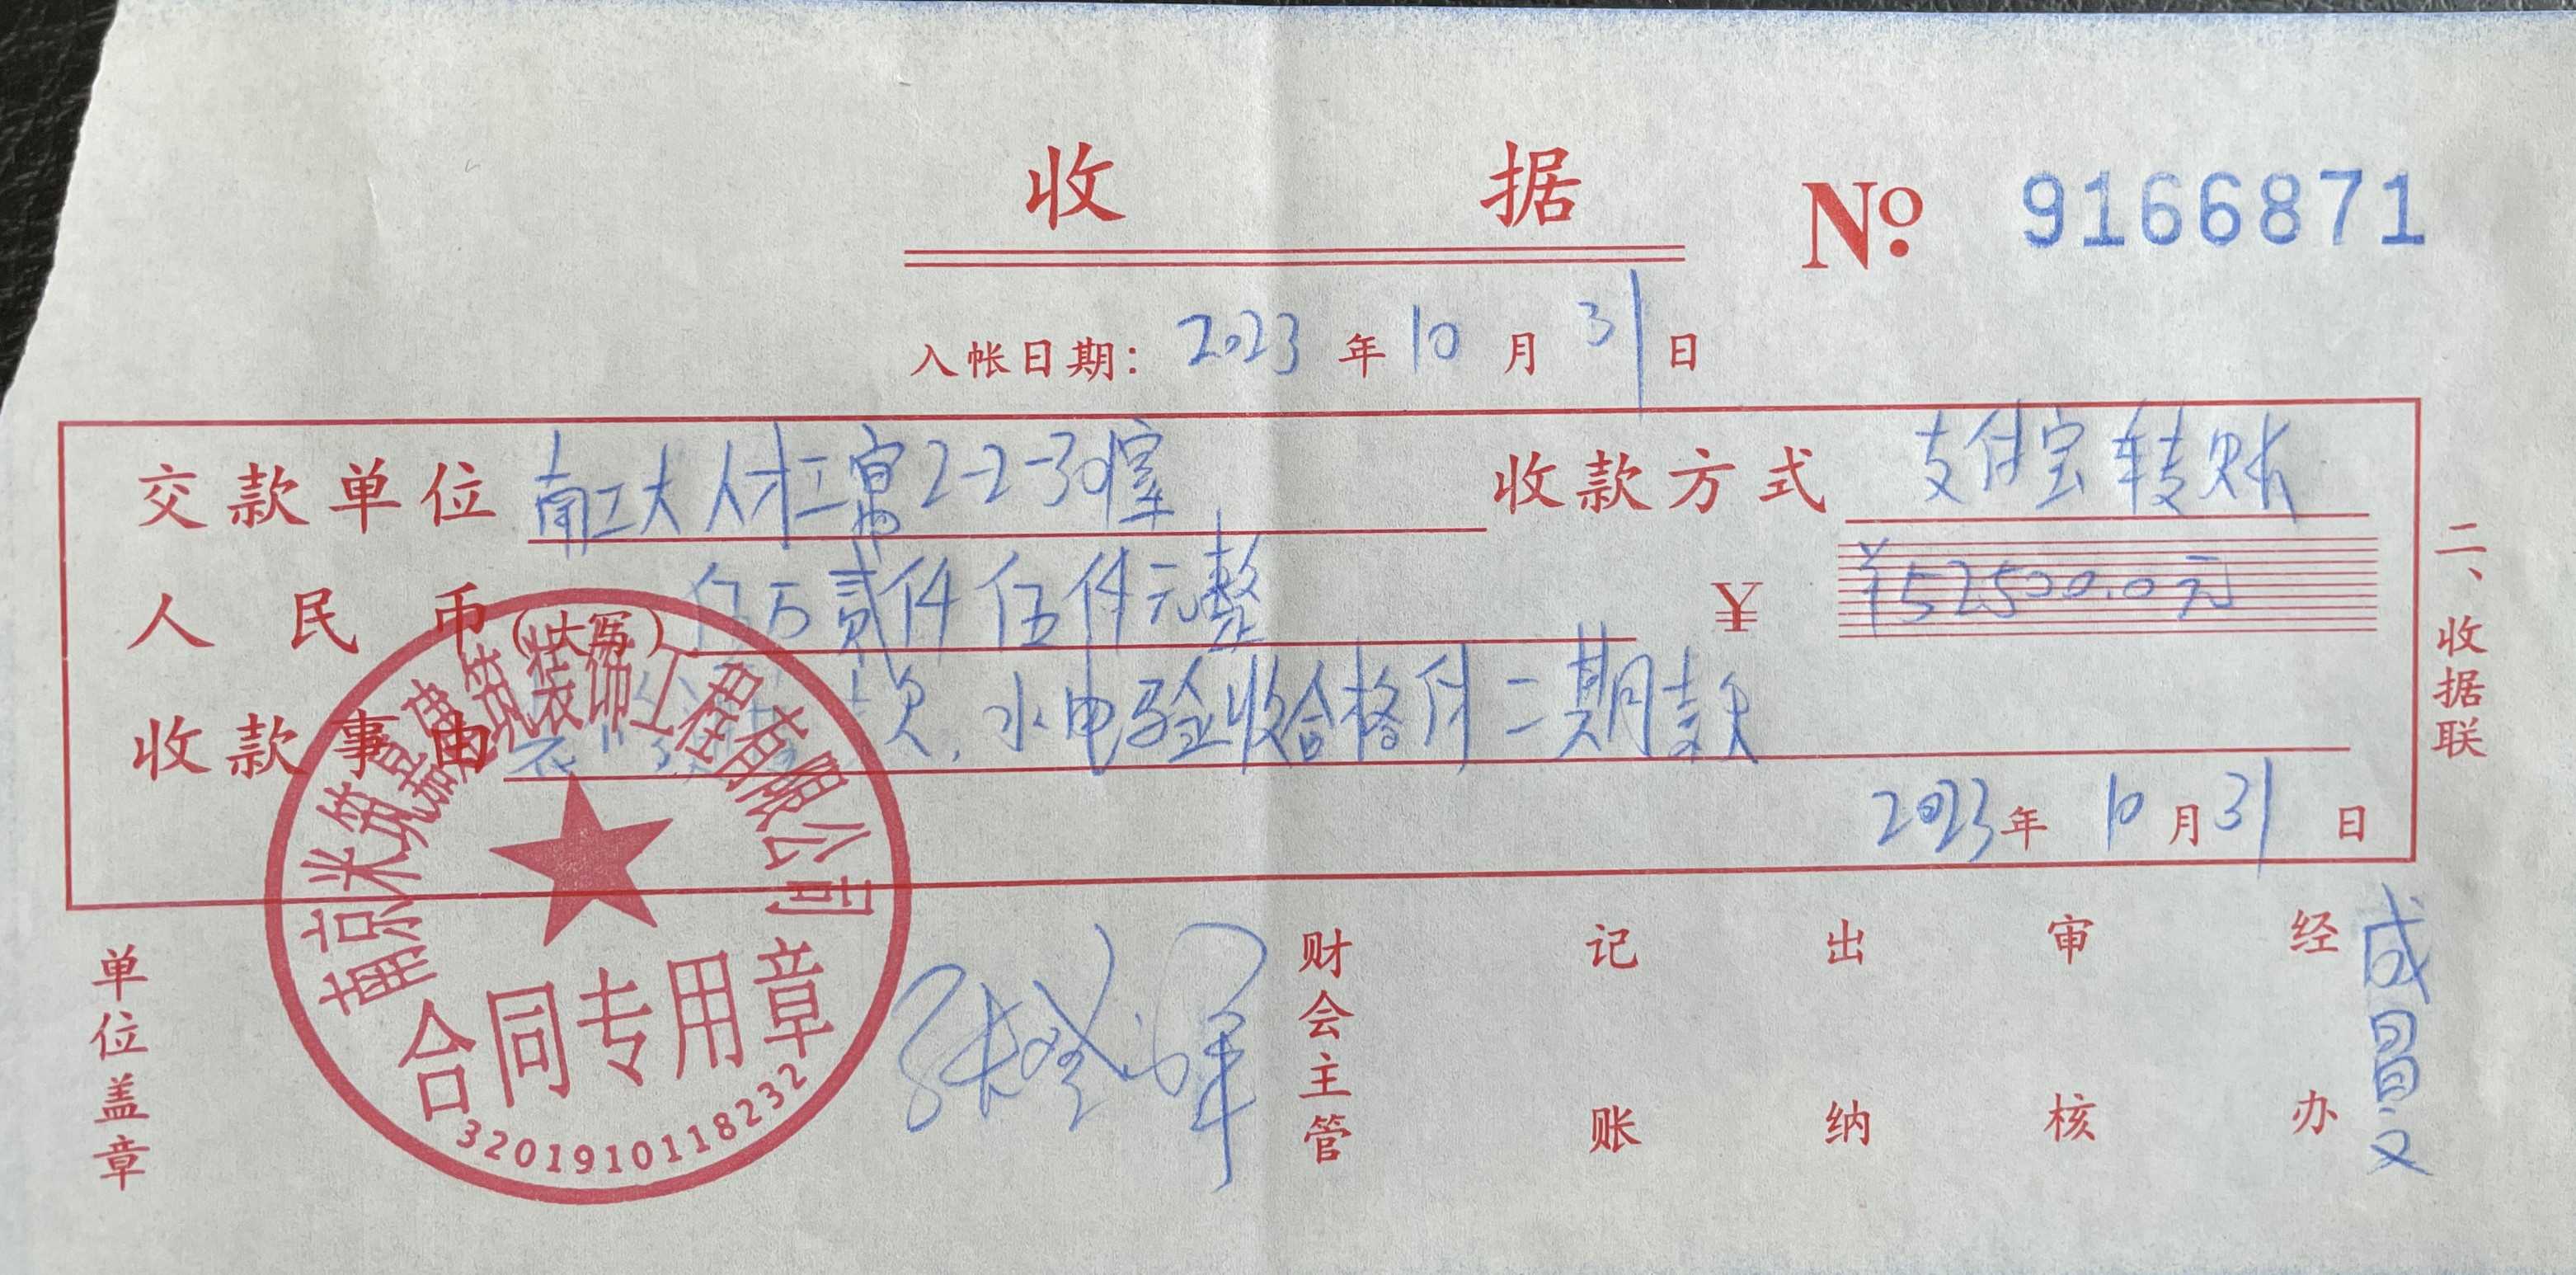 收 据
№ 9166871
入帐日期: 2023 年 10 月 31 日
交款单位 南工大人才公寓2-2-301室 收款方式 支付宝转账
人民币(大写) 伍万贰仟伍仟元整 ¥ ¥52500.0元
收款事由 款,水电验收合格付二期款
2023年 10 月 31 日
二、收据联
单位盖章
南京米筑嘉建筑装饰工程有限公司
合同专用章
3201910118232
财会主管 记账 出纳 审核 经办 成昌文